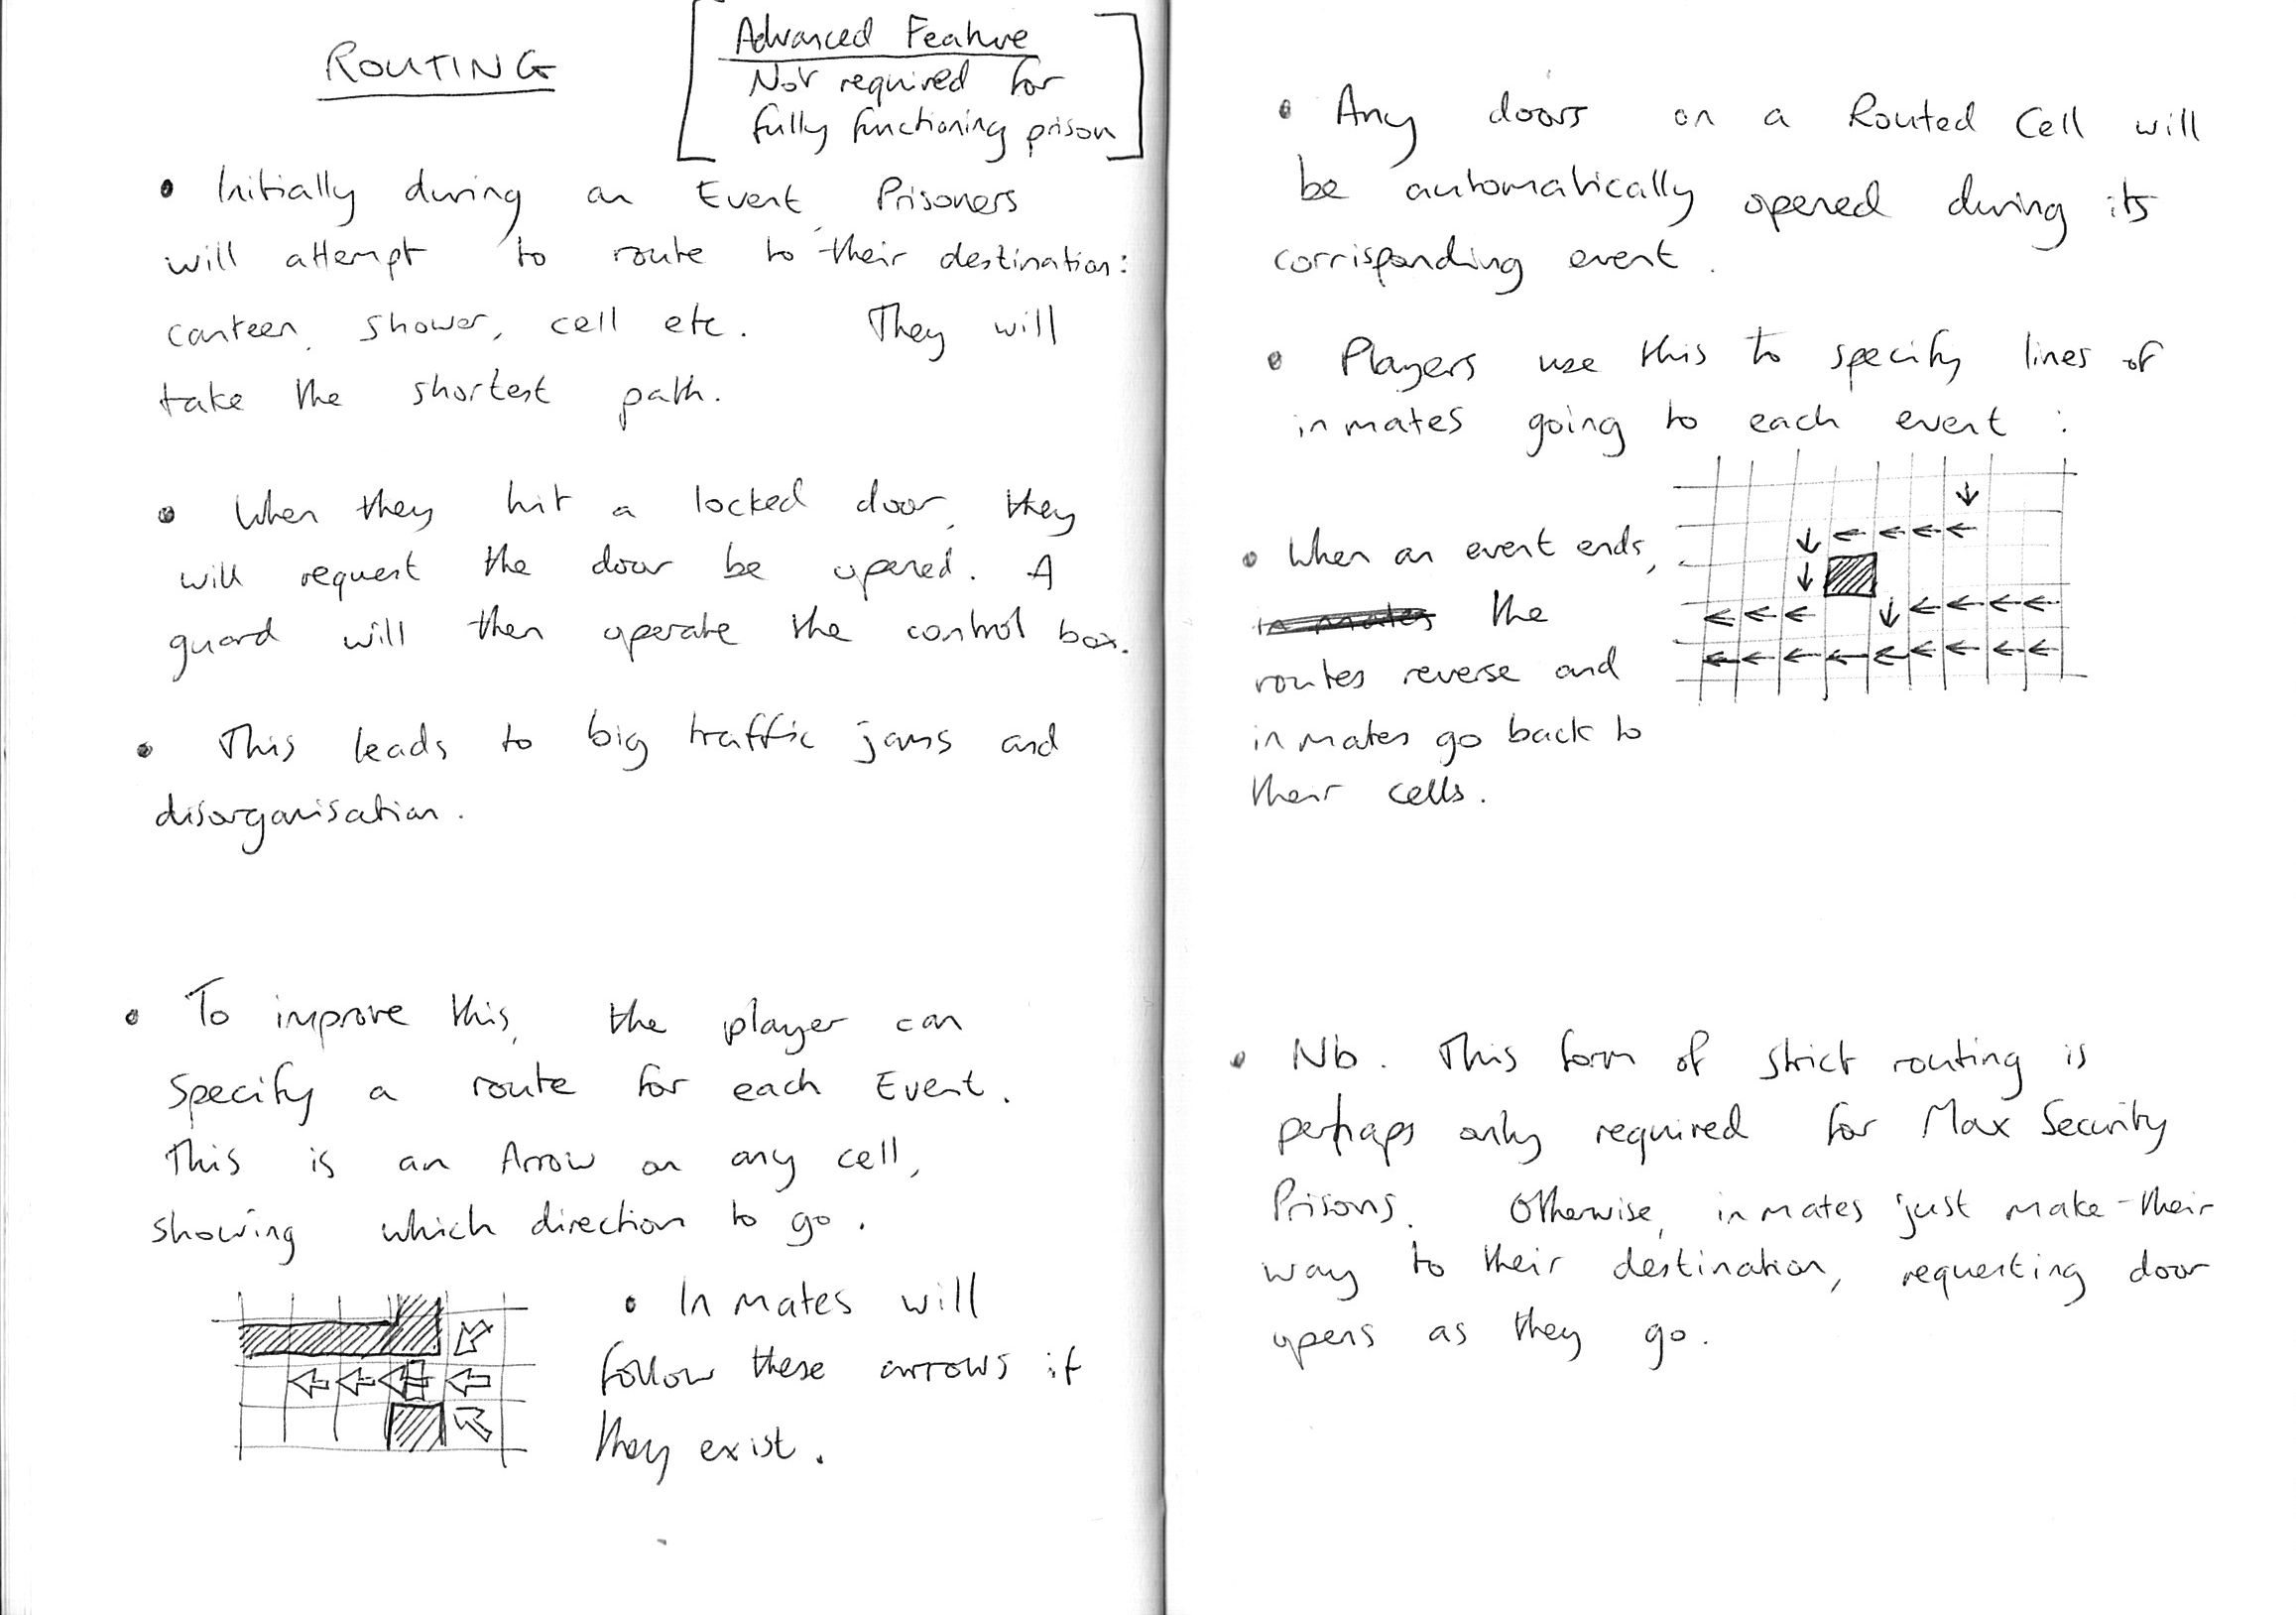 ROUTING
Advanced Feature
Not required for
fully functioning prison
• Initially during an Event, Prisoners
will attempt to route to their destination:
canteen, shower, cell etc. They will
take the shortest path.
• When they hit a locked door, they
will request the door be opened. A
guard will then operate the control box.
• This leads to big traffic jams and
disorganisation.
• To improve this, the player can
specify a route for each Event.
This is an Arrow on any cell,
showing which direction to go.
• Inmates will
follow these arrows if
they exist.
• Any doors on a Routed Cell will
be automatically opened during its
corrisponding event.
• Players use this to specify lines of
inmates going to each event :
• When an event ends,
inmates the
routes reverse and
inmates go back to
their cells.
• Nb. This form of strict routing is
perhaps only required for Max Security
Prisons. Otherwise, inmates just make their
way to their destination, requesting door
opens as they go.